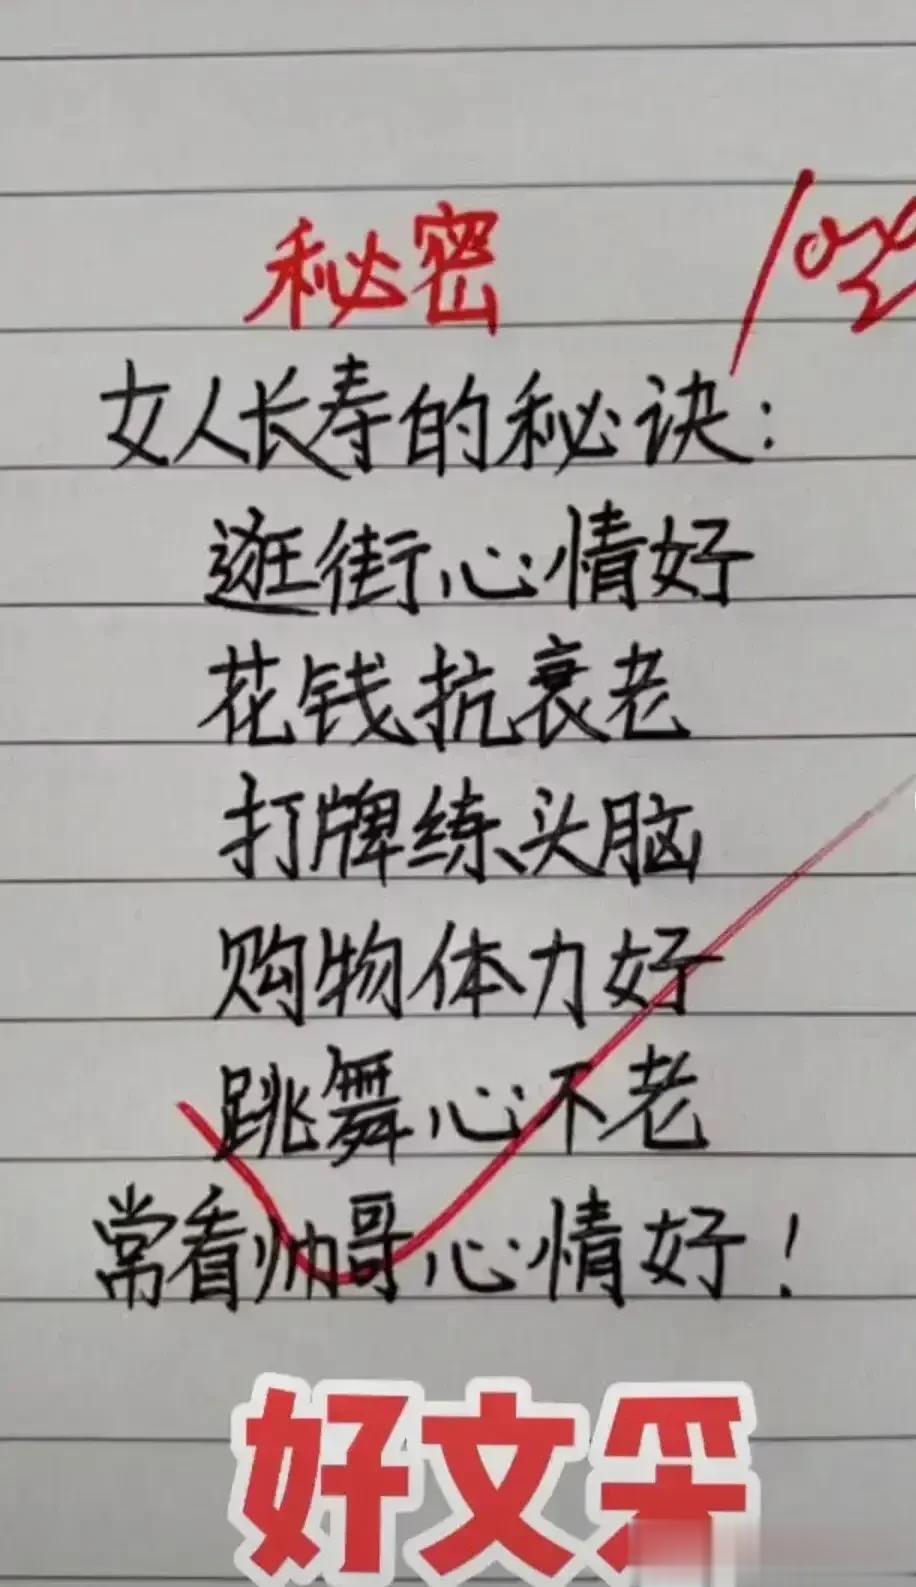 秘密
女人长寿的秘诀:
逛街心情好
花钱抗衰老
打牌练头脑
购物体力好
跳舞心不老
常看帅哥心情好!
好文采